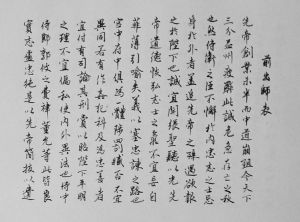 前出師表
先帝創業未半而中道崩殂今天下
三分益州疲弊此誠危急存亡之秋
也然侍衛之臣不懈於內忠志之士忘
身於外者蓋追先帝之殊遇欲報
之於陛下也誠宜開張聖聽以光先
帝遺德恢弘志士之氣不宜妄自
菲薄引喻失義以塞忠諫之路也
宮中府中俱為一體陟罰臧否不宜
異同若有作奸犯科及為忠善者
宜付有司論其刑賞以昭陛下平明
之理不宜偏私使內外異法也侍中
侍郎郭攸之費禕董允等此皆良
實志慮忠純是以先帝簡拔以遺